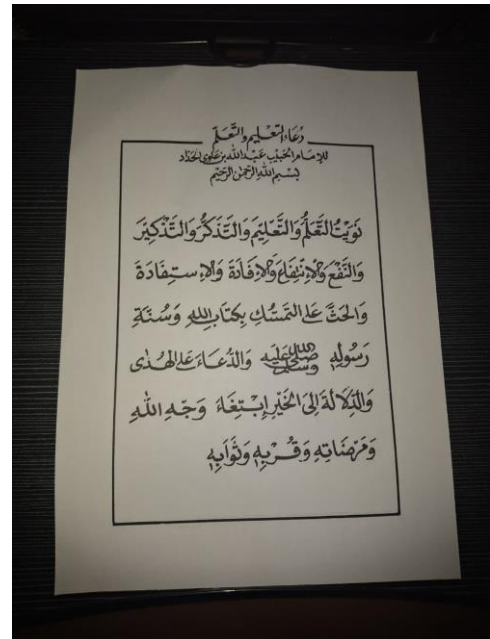 دُعَاءُ التَّعْلِيمِ وَالتَّعَلُّمِ
لِلإِمَامِ الْحَبِيْبِ عَبْدِ اللهِ بْنِ عَلَوِي الْحَدَّادِ
بِسْمِ اللهِ الرَّحْمٰنِ الرَّحِيْمِ
نَوَيْتُ التَّعَلُّمَ وَالتَّعْلِيْمَ وَالتَّذَكُّرَ وَالتَّذْكِيْرَ
وَالنَّفْعَ وَالْاِنْتِفَاعَ وَالْاِفَادَةَ وَالْاِسْتِفَادَةَ
وَالْحَثَّ عَلَى التَّمَسُّكِ بِكِتَابِ اللهِ وَسُنَّةِ
رَسُوْلِهِ صَلَّى اللهُ عَلَيْهِ وَسَلَّمَ وَالدُّعَاءَ عَلَى الْهُدٰى
وَالدِّلَالَةَ اِلَى الْخَيْرِ اِبْتِغَاءَ وَجْهِ اللهِ
وَمَرْضَاتِهِ وَقُرْبِهِ وَثَوَابِهِ